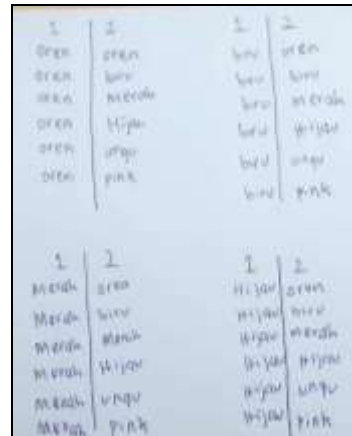 1 2
oren oren
oren biru
oren Merah
oren Hijau
oren ungu
oren pink
1 2
biru oren
biru biru
biru merah
biru Hijau
biru ungu
biru pink
1 2
Merah oren
Merah biru
Merah Merah
Merah Hijau
Merah ungu
Merah pink
1 2
Hijau oren
Hijau biru
Hijau merah
Hijau Hijau
Hijau ungu
Hijau pink